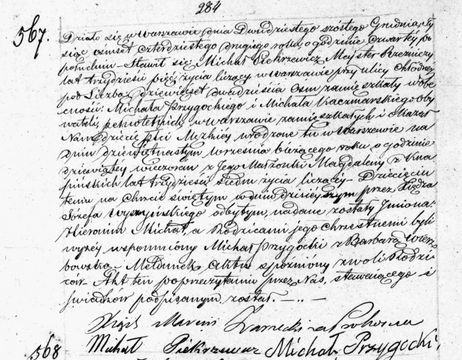 284
567.
Działo się w Warszawie dnia Dwudziestego szóstego Grudnia Ty-
siąc ośmset czterdziestego drugiego roku, o godzinie czwartej po
południu Stawił się Michał Piekrzewicz Majster Rzeźniczy
lat trzydzieści pięć życia liczący w Warszawie przy ulicy Chłodnej
pod Liczbą Dziewięćset dwadzieścia osm zamieszkały w obe-
cności Michała Przygockiego i Michała Kaczmarskiego oby-
wateli pełnoletnich w Warszawie zamieszkałych i okazał
Nam dziecię płci Męzkiej urodzone tu w Warszawie na
dniu dziewiętnastym września bieżącego roku o godzinie
dziewiątej wieczorem z Jego Małżonki Magdaleny z
lat trzydzieści siedm życia liczącej. Dziecięciu
temu na Chrzcie świętym w dniu dzisiejszym przez Księdza
Józefa Wyszyńskiego odbytym, nadane zostały Imiona
Hieronim Michał, a Rodzicami jego Chrzestnemi byli
wyżej wspomniony Michał Przygocki i Barbara
Akt ten poprzeczytaniu przez Nas, stawającego i
świadków podpisanym został.
Xiądz Marcin
Michał Piekrzewicz Michał Przygocki
568